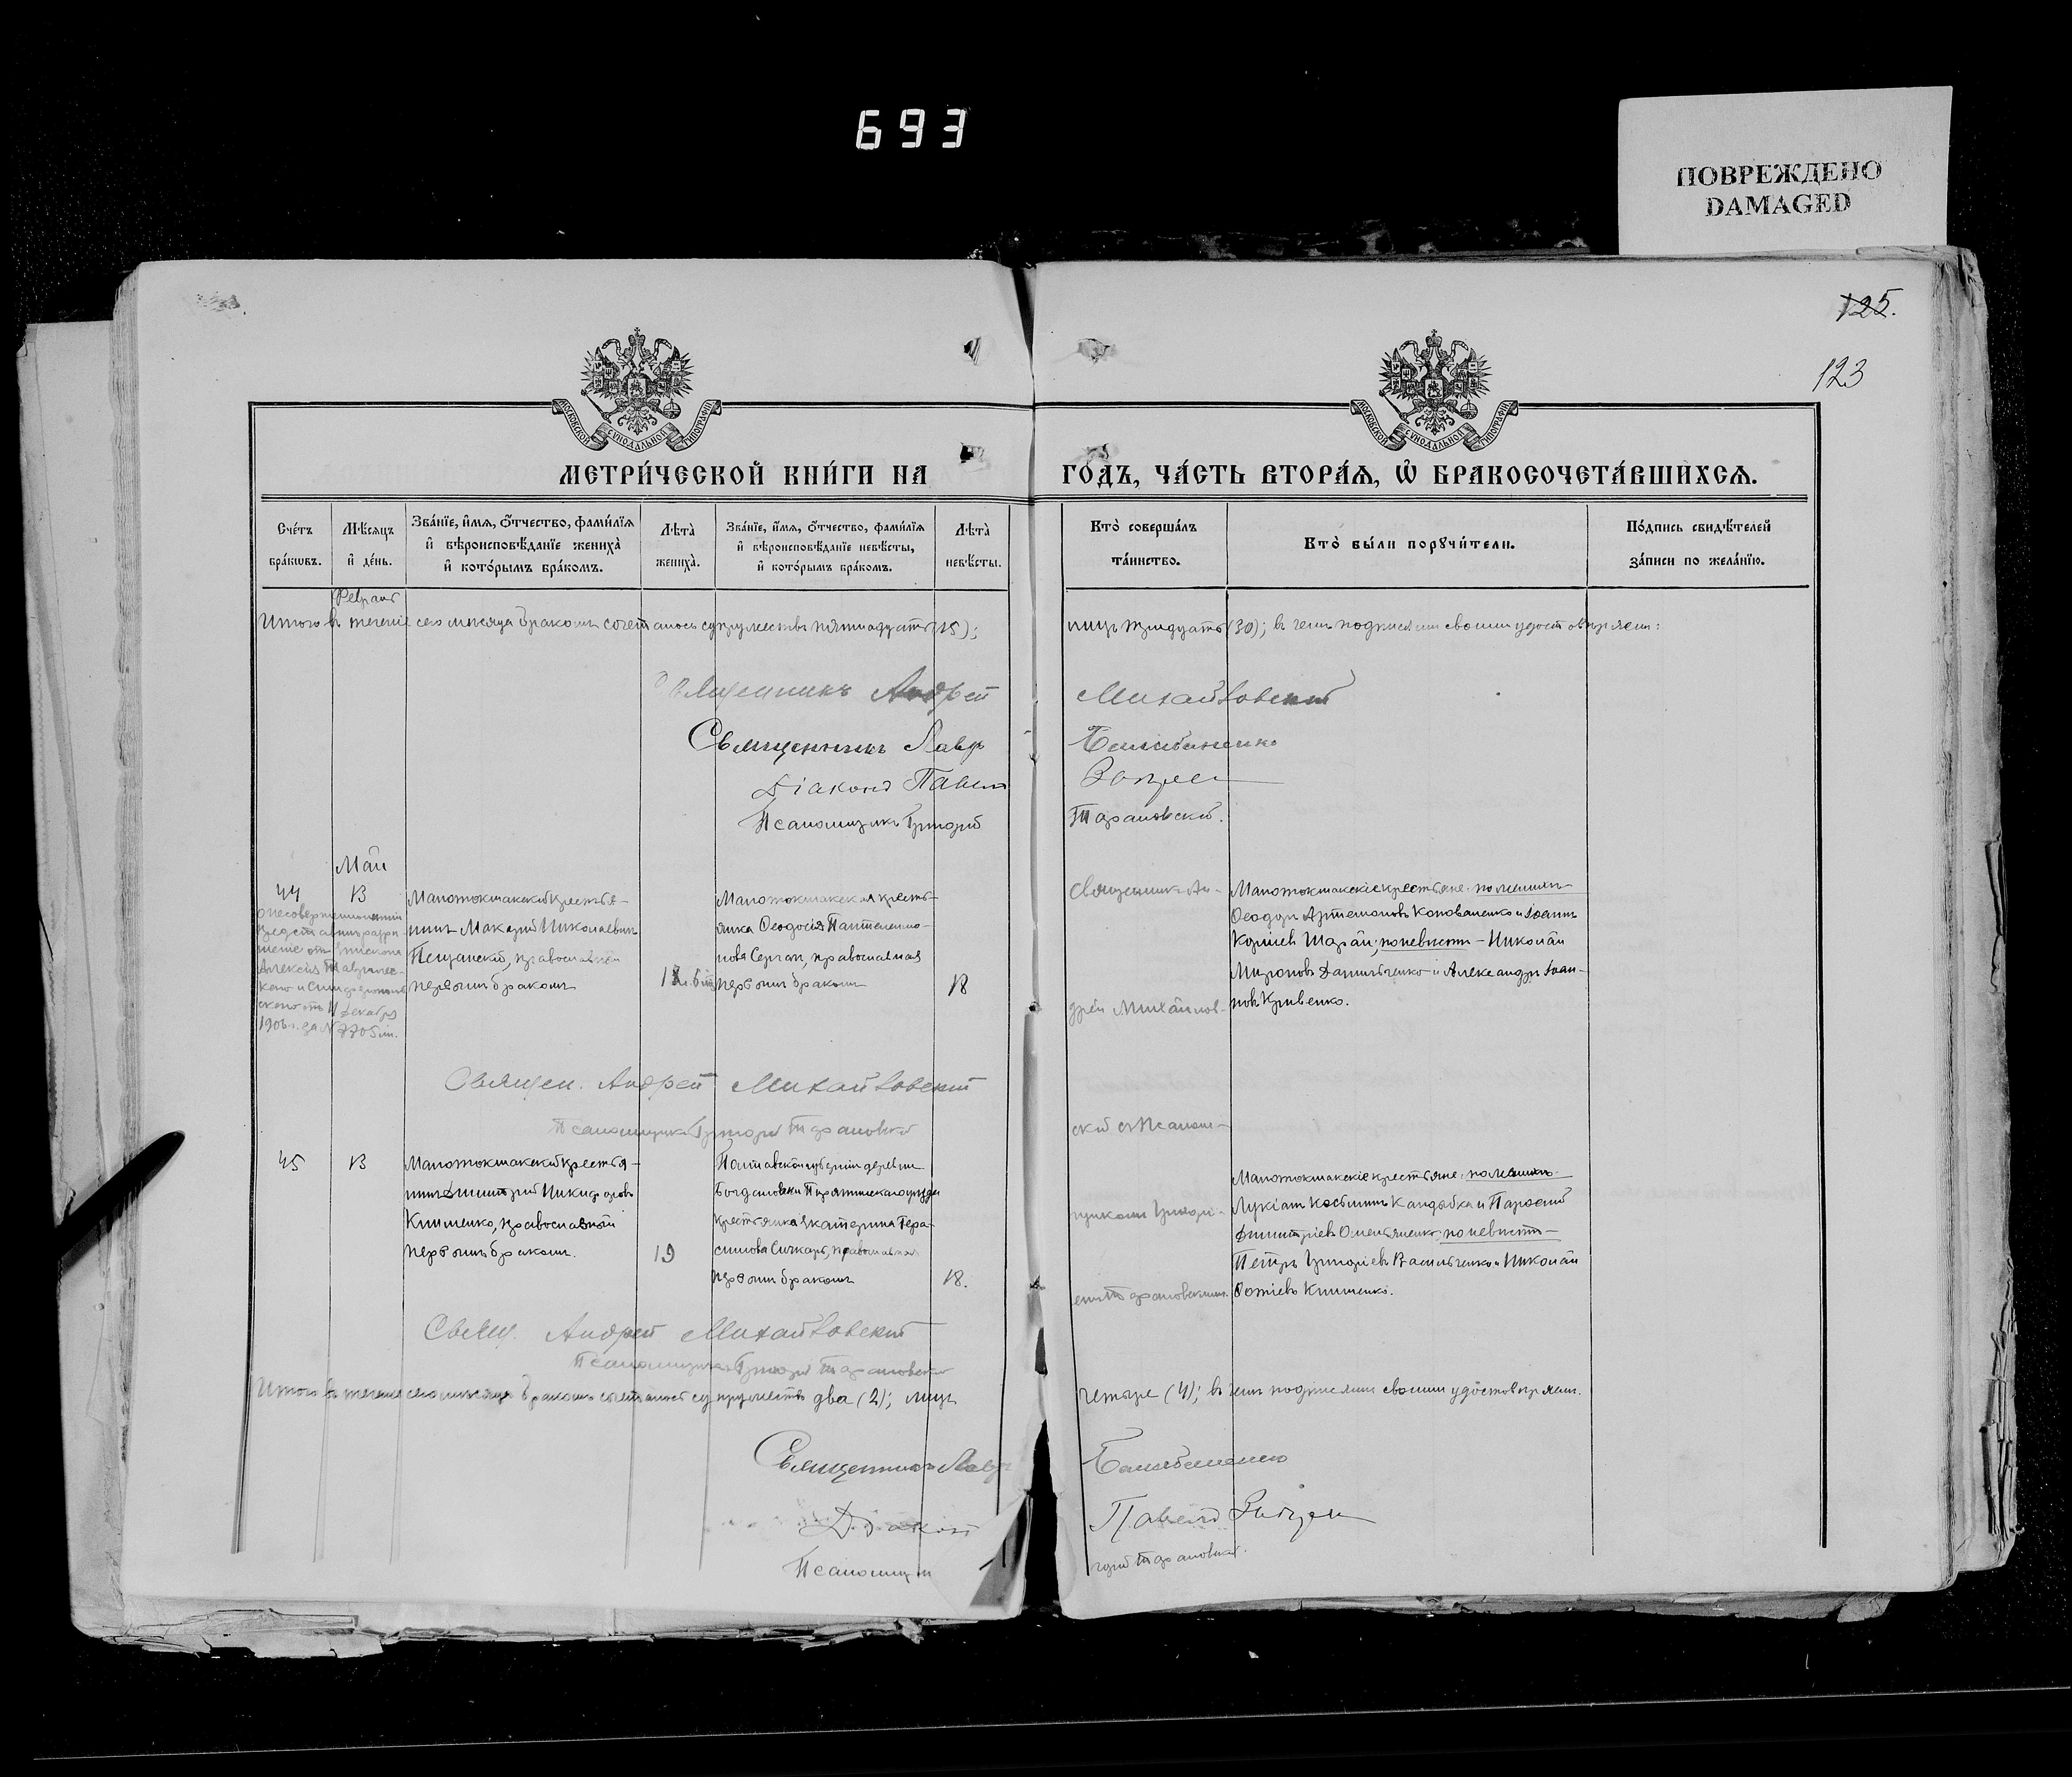 693
ПОВРЕЖДЕНО
DAMAGED
125.
123
МОСКОВСКОЙ СѴНОДАЛЬНОЙ ТИПОГРАФІИ
МОСКОВСКОЙ СѴНОДАЛЬНОЙ ТИПОГРАФІИ
МЕТРИ́ЧЕСКОЙ КНИ́ГИ НА ГО́ДЪ, ЧА́СТЬ ВТОРА́Я, Ѡ҆ БРАКОСОЧЕТА́ВШИХСЯ.
Сче́тъ бра́кѡвъ.
Мѣ́сяцъ и҆ де́нь.
Зва́нїе, и҆́мя, о҆́тчество, фами́лїя и҆ вѣроисповѣ́данїе жениха̀ и҆ кото́рымъ бра́комъ.
Лѣта̀ жениха̀.
Зва́нїе, и҆́мя, о҆́тчество, фами́лїя и҆ вѣроисповѣ́данїе невѣ́сты, и҆ кото́рымъ бра́комъ.
Лѣта̀ невѣ́сты.
Кто̀ соверша́лъ та́инство.
Кто̀ бы́ли порꙋчи́тели.
По́дпись свидѣ́телей за́писи по жела́нїю.
Итого въ теченіе сего мѣсяца бракомъ сочеталось супружествъ пятнадцать (15); лицъ тридцать (30); въ чемъ подписями своими удостовѣряемъ:
Священникъ Андрей Михайловскій
Священникъ Лавръ
Діаконъ Павелъ
Псаломщикъ Григорій Тарановскій.
Май
44
13
Малотокмакскій крестья-
нинъ Макарій Николаевъ
Песчанскій, православный
первымъ бракомъ
Малотокмакская кресть-
янка Ѳеодосія Пантелеимо-
нова Сергап, православная
первымъ бракомъ
18
Священникъ Ан-
дрей Михайлов-
скій съ Псалом-
щикомъ Григорі-
емъ Тарановскимъ.
Малотокмакскіе крестьяне: по женихѣ-
Ѳеодоръ Артемоновъ Коноваленко и Іоаннъ
Шарай; по невѣстѣ - Николай
Мироновъ Данильченко и Александръ Іоан-
новъ Кривенко.
Священ. Андрей Михайловскій
Псаломщикъ Григорій Тарановскій
45
13
Малотокмакскій крестья-
нинъ Димитрій Никифоровъ
Клименко, православный
первымъ бракомъ.
19
Полтавской губерніи деревни
Богдановки Пирятинскаго уѣзда
крестьянка Екатерина Гера-
симова Сичкарь, православная
первымъ бракомъ
18.
Малотокмакскіе крестьяне: по женихѣ-
Лукіанъ Косьминъ Кандыбка и
Димитріевъ Омельяненко; по невѣстѣ-
Петръ Григоріевъ Васильченко и Николай
Фотіевъ Клименко.
Свящ. Андрей Михайловскій
Псаломщикъ Григорій Тарановскій
Итого въ теченіе сего мѣсяца бракомъ сочеталось супружествъ два (2); лицъ четыре (4); въ чемъ подписями своими удостовѣряемъ.
Священникъ Лавръ
Діаконъ Павелъ
Псаломщи горій Тарановскій.